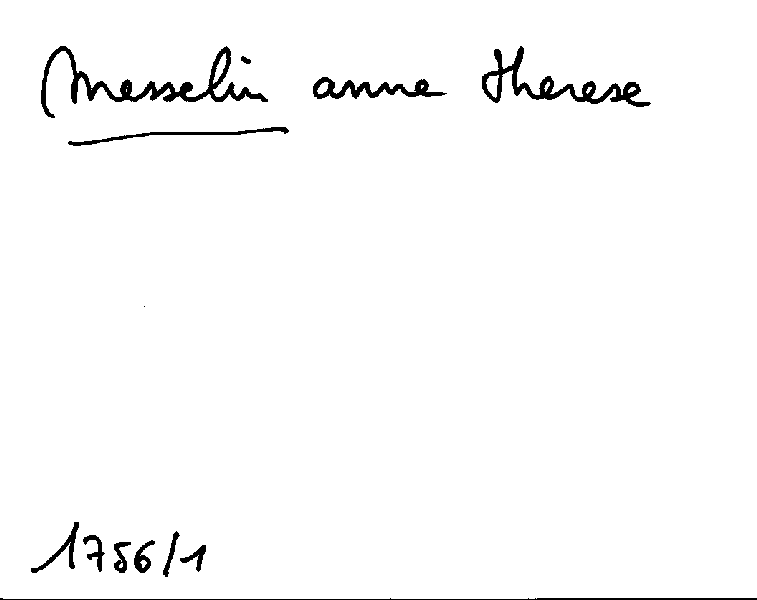 Messelin anne therese
1756/1